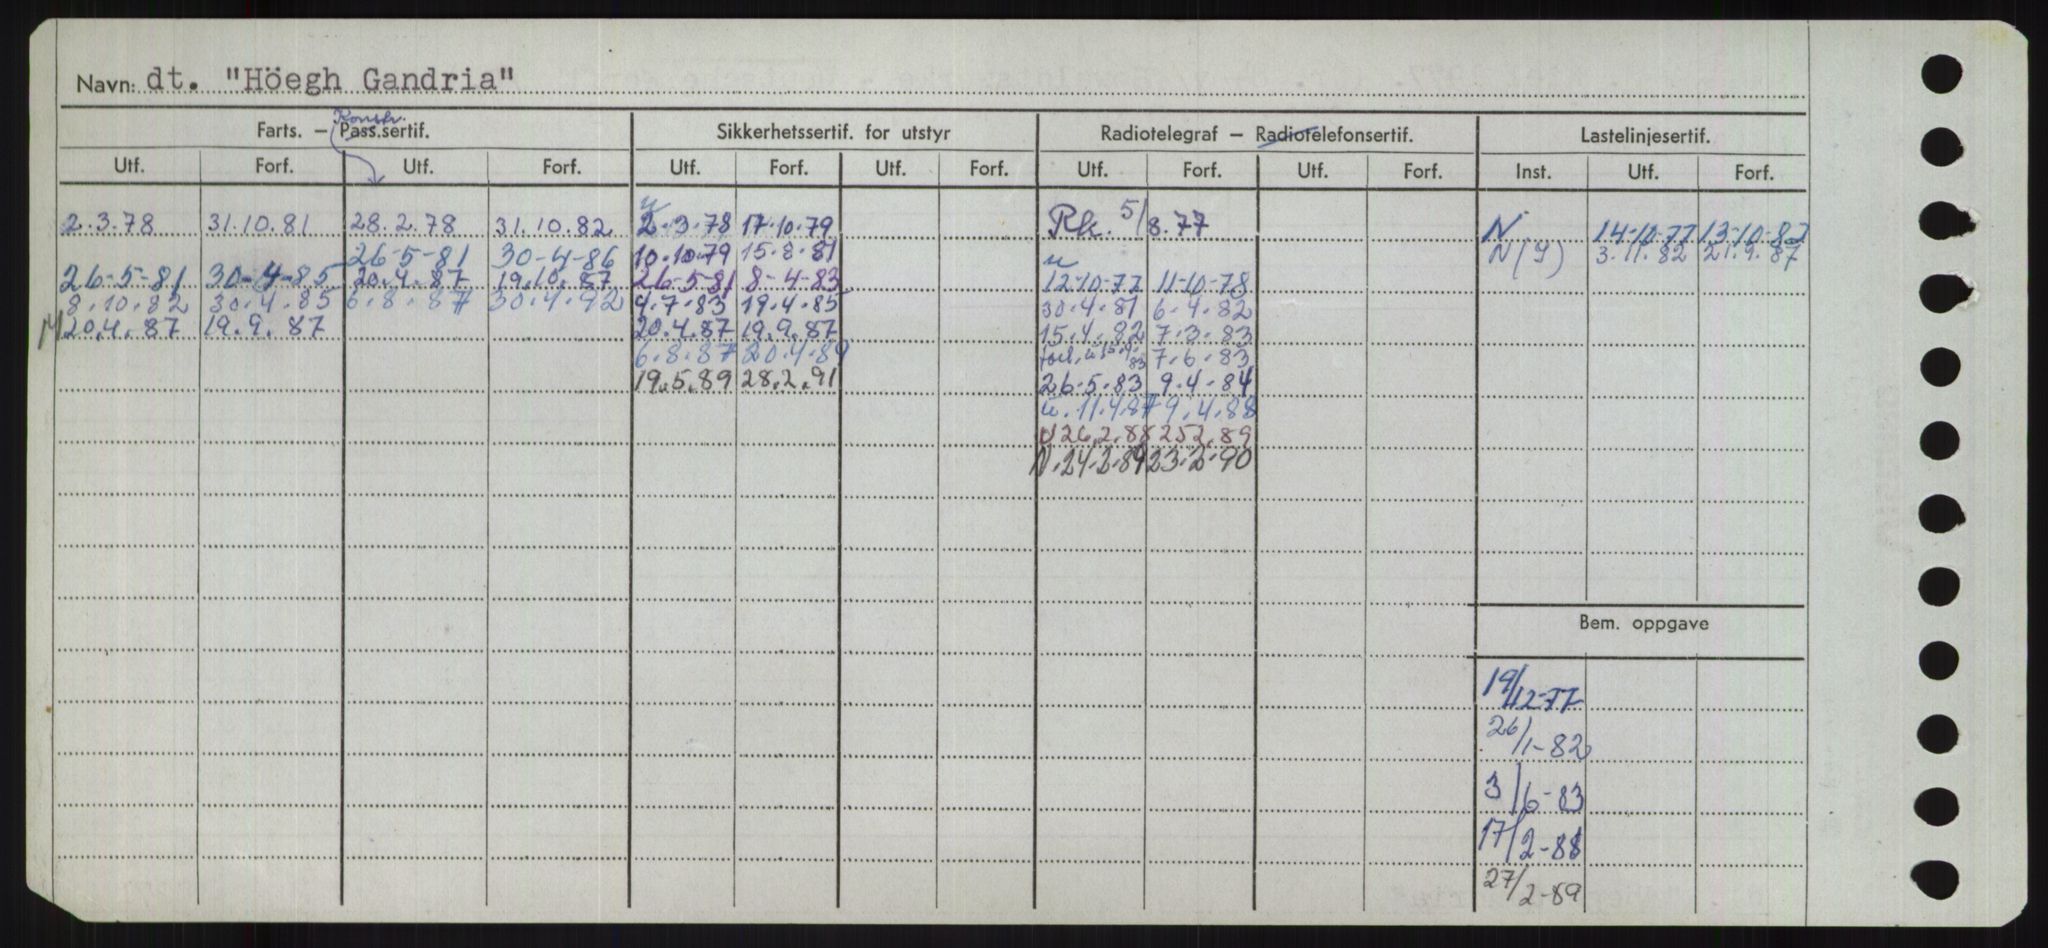 Navn: dt. "Höegh Gandria"
Konstr.
Farts. — Pass.sertif. Sikkerhetssertif. for utstyr Radiotelegraf — Radiotelefonsertif. Lastelinjesertif.
Utf. Forf. Utf. Forf. Utf. Forf. Utf. Forf. Utf. Forf. Utf. Forf. Inst. Utf. Forf.
2.3.78 31.10.81 28.2.78 31.10.82 2.3.78 17.10.79 Rk. 5/8.77 N 14-10-77 13-10-82
26-5-81 30-4-86 10.10.79 15.8.81 N(I) 3.11.82 21.9.87
26-5-81 30-4-85 20.4.87 19.10.87 26-5-81 8-4-83 12-10-77 11-10-78
8.10.82 30.4.85 6.8.87 30.4.92 4.7.83 19.4.85 30.4.81 6.4.82
M 20.4.87 19.9.87 20.4.87 19.9.87 15.4.82 7.3.83
6.8.87 20.4.89 83 7.6.83
19.5.89 28.2.91 26-5-83 9.4-84
u. 11.4.87 9.4.88
N 26.2.88 25.2.89
N.24.2.89 23.2.90
Bem. oppgave
19/12-77
26/1-82
3/6-83
17/2-88
27/2-89